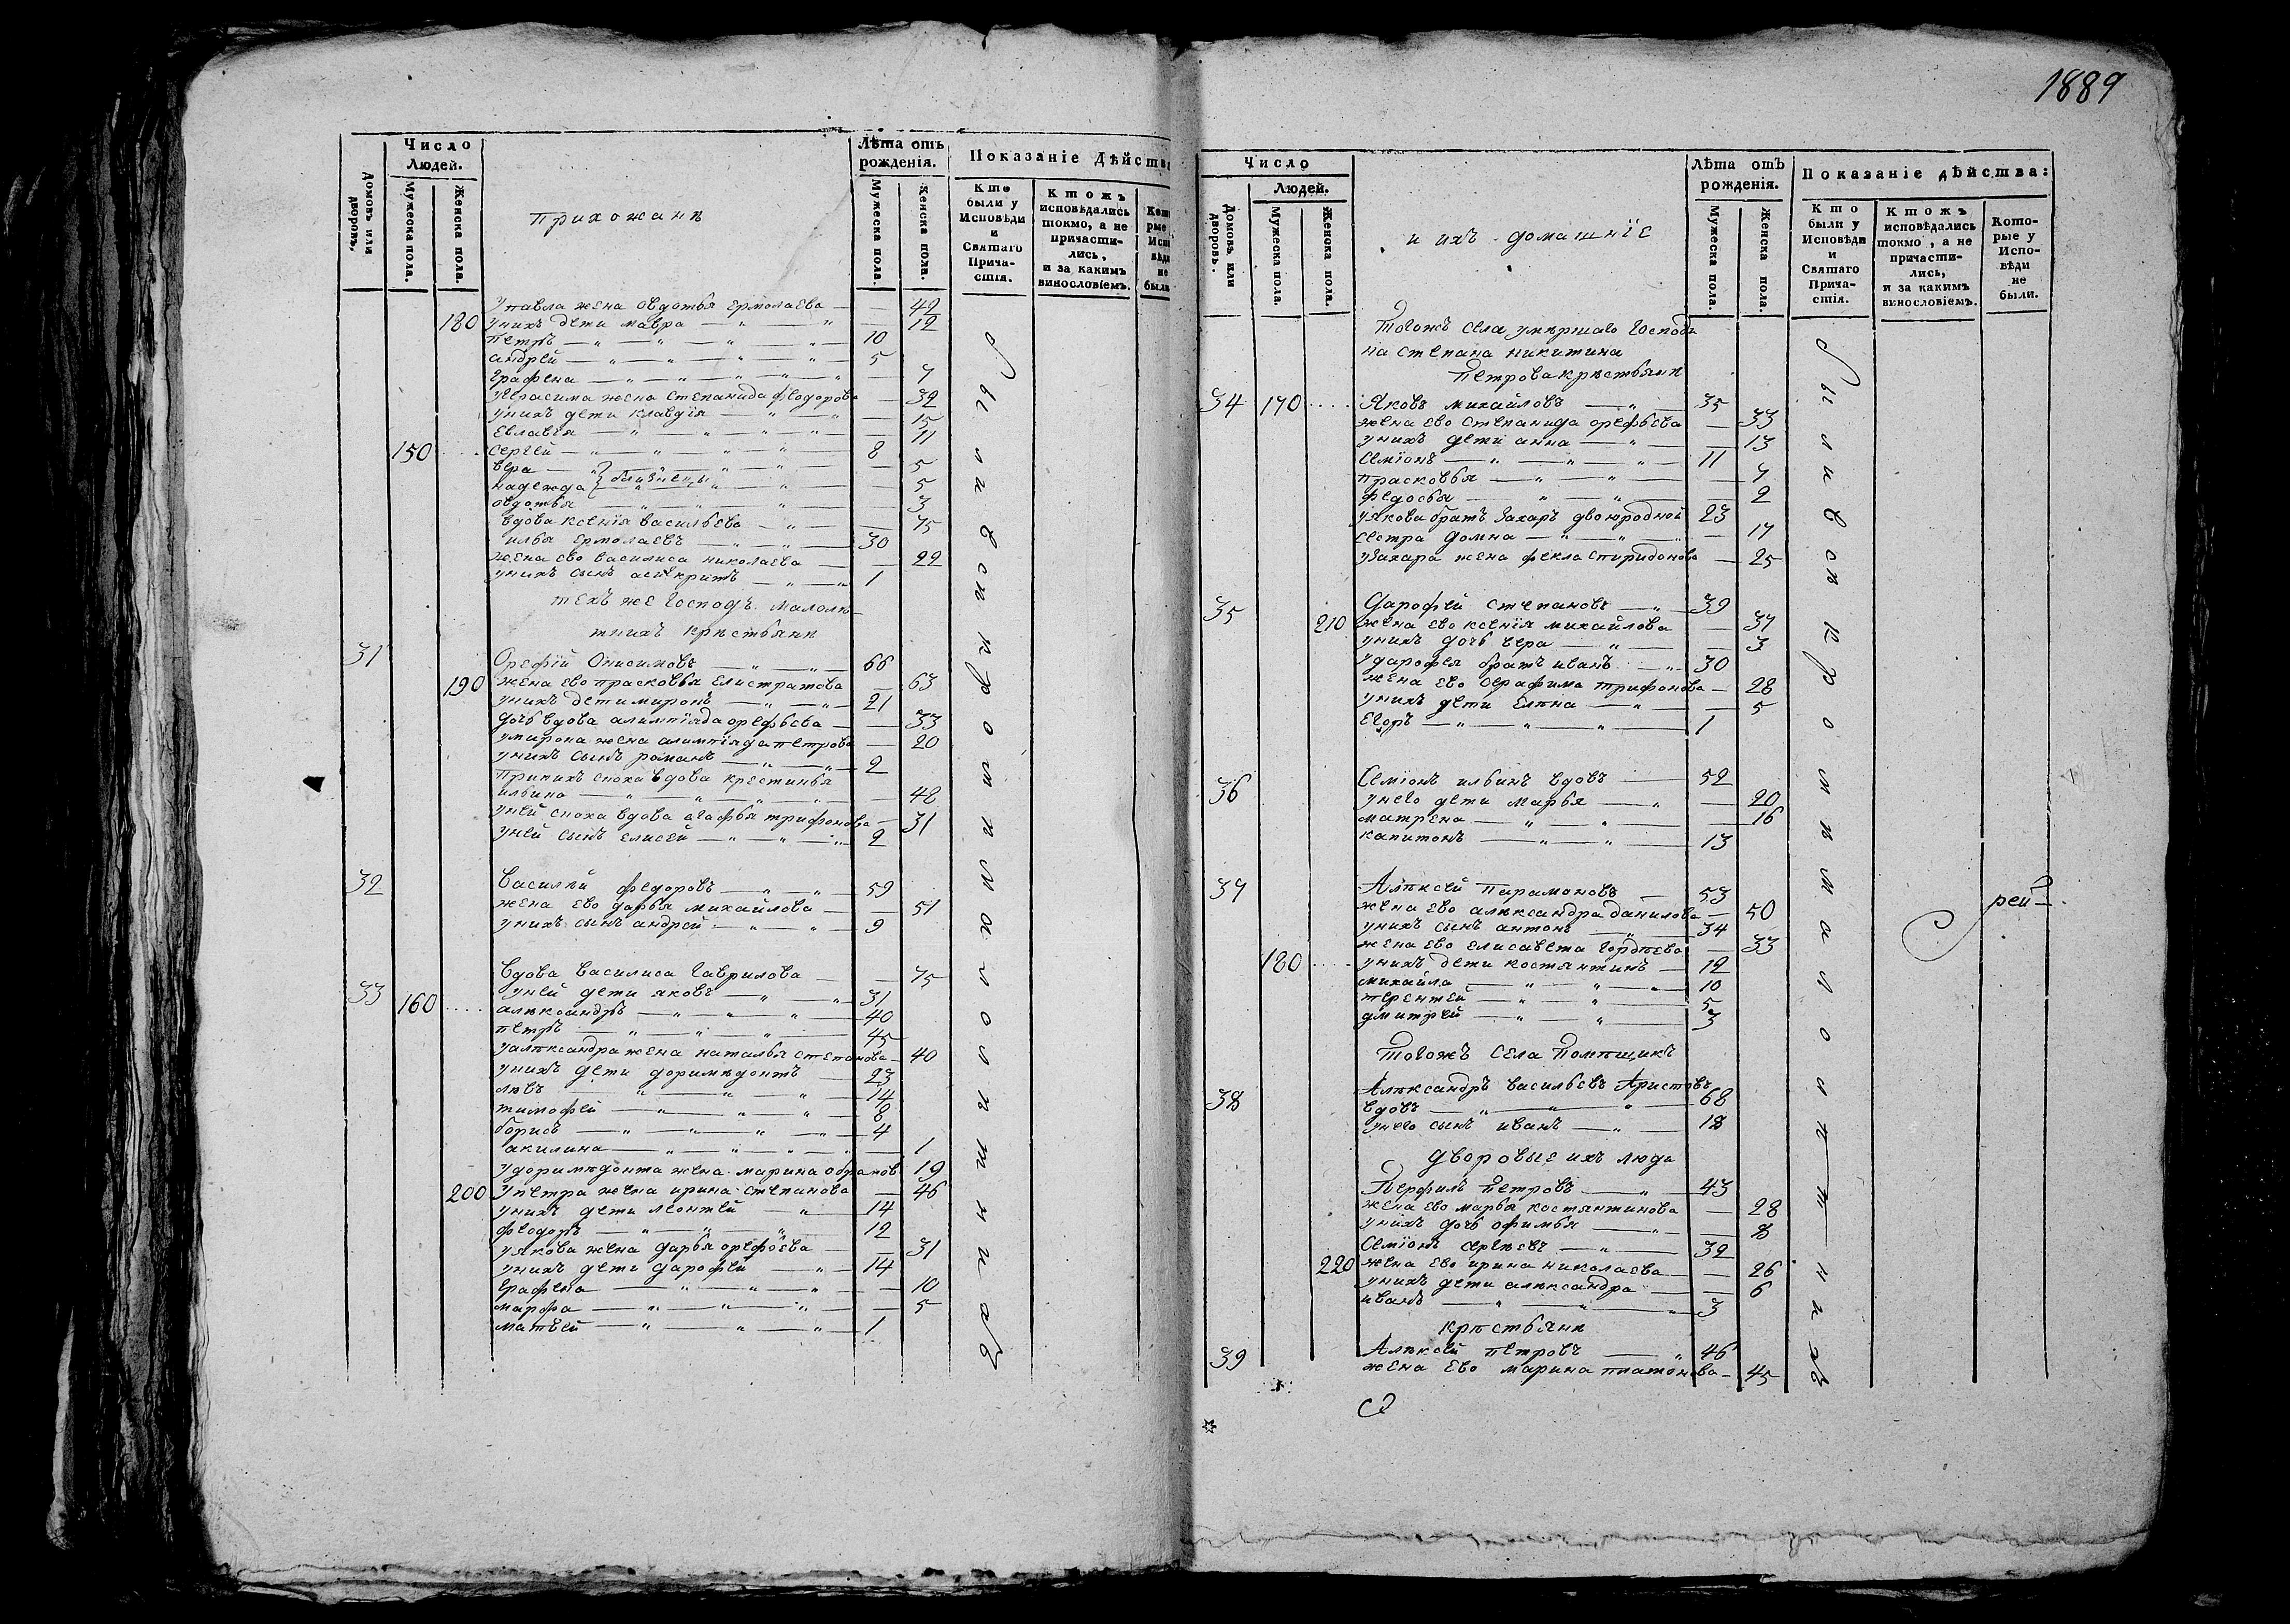 1889
Число
Людей.
Домовъ или дворовъ.
Мужеска пола.
Женска пола.
Прихожанѣ
Лѣта отъ
рожденія.
Мужеска пола.
Женска пола.
Показаніе Дѣйств
Кто
были у
Исповѣди
и
Святаго
Прича-
стія.
Ктожъ
исповѣдались
токмо, а не
причасти-
лись,
и за какимъ
винословіемъ.
Кото
рые
Исп
вѣди
не
были
упавла жена овдотья ермолаева — 42
180 унихъ дети мавра — 12
петръ — 10
андрей — 5
Графена — 7
угерасима жена степанида федорова — 32
унихъ дети клавдїя — 15
Евлавїя — 11
150 Сергей — 8
вера — 5
надежда } близнецы — 5
овдотья — 3
вдова ксенїя васильева — 75
илья ермолаевъ — 30
жена ево василиса николаева — 22
унихъ сынъ асигкритъ — 1
техъ же господъ малолѣ-
тнихъ крѣстьянѣ
31 Орефїй Онисимовъ — 66
190 жена ево прасковья Елистратова — 63
унихъ дети миронъ — 21
дочь вдова алимпїяда орефьева — 33
умирона жена алимпїяда петрова — 20
унихъ сынъ романъ — 2
Принихъ сноха вдова крестинья
ильина — 48
уней сноха вдова агафья трифонова — 31
уней сынъ елисей — 2
32 Василѣй федоровъ — 59
жена ево дарья михайлова — 51
унихъ сынъ андрей — 9
33 вдова Василиса Гаврилова — 75
уней дети яковъ — 31
160 алѣксандръ — 40
петръ — 45
уалѣксандра жена наталья степанова — 40
унихъ дети доримѣдонтъ — 23
лѣвъ — 14
тимофей — 8
борисъ — 4
акилина — 1
удоримѣдонта жена марина 19
200 упетра жена ирина степанова — 46
унихъ дети леонтей — 14
федоръ — 12
уякова жена дарья орефьева — 31
унихъ дети дарофей — 14
Графена — 10
марфа — 5
матвей — 1
Были все при исповеди
Число
Людей.
Домовъ или дворовъ.
Мужеска пола.
Женска пола.
и ихъ домашнїе
Лѣта отъ
рожденія.
Мужеска пола.
Женска пола.
Показаніе дѣйства:
Кто
были у
Исповѣди
и
Святаго
Прича-
стія.
Ктожъ
исповѣдались
токмо, а не
причасти-
лись,
и за какимъ
винословіемъ.
Кото-
рые у
Испо-
вѣди
не
были.
Тогожъ села умѣршаго господи
на степана никитина
Петрова крѣстьянѣ
34 170 Яковъ михайловъ — 35
жена ево степанида орефьева — 33
унихъ дети анна — 13
семїонъ — 11
прасковья — 7
федосья — 2
уякова братъ захаръ двоюродной 23
сестра домна — 17
узахара жена фекла спиридонова — 25
35 Дарофей степановъ — 39
210 жена ево ксенїя михайлова — 37
унихъ дочь вера — 3
ударофея братъ иванъ — 30
жена ево серафима трифонова — 28
унихъ дети елѣна — 5
Егоръ — 1
36 Семїонъ ильинъ вдовъ — 52
унего дети марья — 20
матрена — 16
капитонъ — 13
37 Алѣксей Парамоновъ — 53
жена ево алѣксандра данилова — 50
унихъ сынъ антонъ — 34
жена ево елисавета гордѣева — 33
180 унихъ дети костянтинъ — 12
михайла — 10
терентей — 5
дмитрей — 3
Тогожъ села помѣщикъ
38 Алѣксандръ васильевъ Аристовъ
вдовъ — 68
унего сынъ иванъ — 18
дворовые ихъ люди
Перфилъ петровъ — 43
жена ево марья костянтинова — 28
унихъ дочь офимья — 8
Семїонъ сергѣевъ — 32
220 жена ево ирина николаева — 26
унихъ дети алѣксандра — 6
иванъ — 3
крѣстьянѣ
39 Алѣксей петровъ — 46
жена ево марина платонова — 45
рей